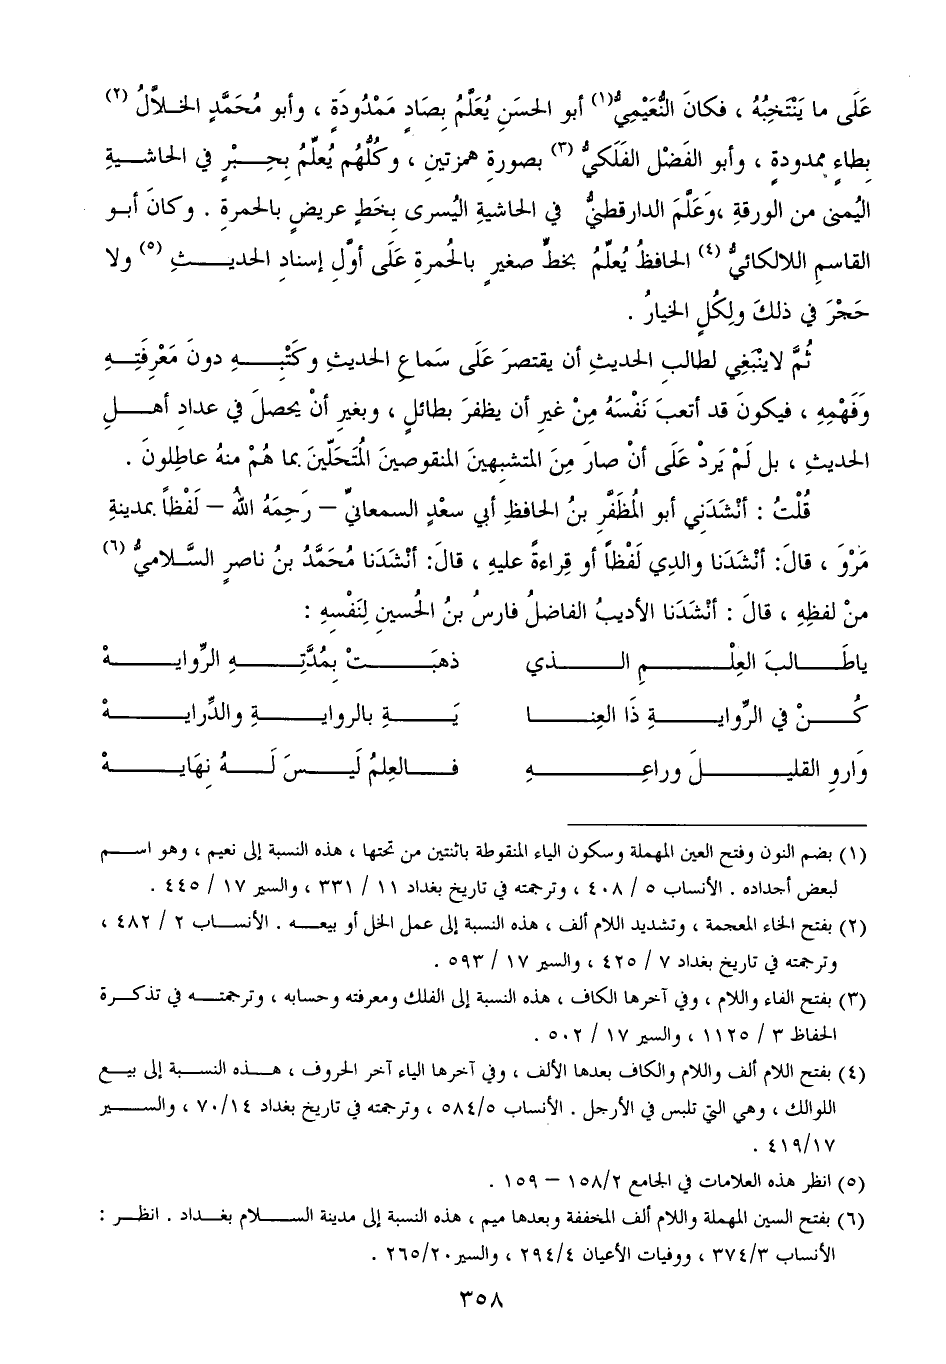 عَلَى ما يَنْتَخِبُهُ ، فكانَ النُّعَيْمِيُّ(١) أبو الحسَنِ يُعَلِّمُ بِصَادٍ مَمْدُودَةٍ ، وأبو مُحَمَّدٍ الخلاَّلُ (٢)
بطاءٍ ممدودة ، وأبو الفَضْلِ الفَلَكيُّ (٣) بصورةِ همزتينِ ، وكُلُّهُم يُعلِّمُ بِحِبْرٍ في الحاشيةِ
اليُمنى من الورقةِ ،وَعَلَّمَ الدارقطنيُّ في الحاشيةِ اليُسرى بِخَطٍ عريضٍ بالحمرةِ . وكانَ أبو
القاسمِ اللالكائيُّ (٤) الحافظُ يُعلِّمُ بخطٍّ صغيرٍ بالحُمرةِ عَلَى أوَّلِ إسنادِ الحديثِ (٥) ولا
حَجْرَ في ذلكَ ولِكُلٍ الخيارُ .
ثُمَّ لايَنْبَغِي لطالبِ الحديثِ أن يقتصرَ عَلَى سَماعِ الحديثِ وكَتْبِهِ دونَ مَعْرِفَتِهِ
وَفَهْمِهِ ، فيكونَ قد أتعبَ نَفْسَهُ مِنْ غيرِ أن يظفرَ بطائلٍ ، وبغيرِ أنْ يحصلَ في عدادِ أهلِ
الحديثِ ، بل لَمْ يَردْ عَلَى أن صارَ مِنَ المتشبهينَ المنقوصينَ المُتَحَلِّينَ بما هُمْ منهُ عاطِلونَ .
قُلْتُ : أنْشَدَني أبو المُظَفَّرِ بنُ الحافظِ أبي سعْدٍ السمعانيِّ – رَحِمَهُ اللهُ – لَفْظاً بمدينةِ
مَرْوَ ، قالَ: أنْشَدَنا والدِي لَفْظاً أو قِراءةً عليهِ ، قالَ: أنْشَدَنا مُحَمَّدُ بنُ ناصرٍ السَّلاميُّ (٦)
منْ لفظِهِ ، قالَ : أنْشَدَنا الأديبُ الفاضلُ فارسُ بنُ الحُسينِ لِنَفْسِهِ :
ياطَالبَ العِلْمِ الذي ذهبَتْ بِمُدَّتِهِ الرِّوايةْ
كُنْ في الرِّوايةِ ذَا العِنا يَةِ بالروايةِ والدِّرايةْ
وَاروِ القليلَ وراعِهِ فالعِلمُ لَيسَ لَهُ نِهَايةْ
(١) بضم النون وفتح العين المهملة وسكون الياء المنقوطة باثنتين من تحتها ، هذه النسبة إلى نعيم ، وهو اسم
لبعض أجداده . الأنساب ٥ / ٤٠٨ ، وترجمته في تاريخ بغداد ١١ / ٣٣١ ، والسير ١٧ / ٤٤٥ .
(٢) بفتح الخاء المعجمة ، وتشديد اللام ألف ، هذه النسبة إلى عمل الخل أو بيعه . الأنساب ٢ / ٤٨٢ ،
وترجمته في تاريخ بغداد ٧ / ٤٢٥ ، والسير ١٧ / ٥٩٣ .
(٣) بفتح الفاء واللام ، وفي آخرها الكاف ، هذه النسبة إلى الفلك ومعرفته وحسابه ، وترجمته في تذكرة
الحفاظ ٣ / ١١٢٥ ، والسير ١٧ / ٥٠٢ .
(٤) بفتح اللام ألف واللام والكاف بعدها الألف ، وفي آخرها الياء آخر الحروف ، هذه النسبة إلى بيع
اللوالك ، وهي التي تلبس في الأرجل . الأنساب ٥٨٤/٥ ، وترجمته في تاريخ بغداد ٧٠/١٤ ، والسير
٤١٩/١٧ .
(٥) انظر هذه العلامات في الجامع ١٥٨/٢ – ١٥٩ .
(٦) بفتح السين المهملة واللام ألف المخففة وبعدها ميم ، هذه النسبة إلى مدينة السلام بغداد . انظر :
الأنساب ٣٧٤/٣ ، ووفيات الأعيان ٢٩٤/٤ ، والسير٢٦٥/٢٠ .
٣٥٨